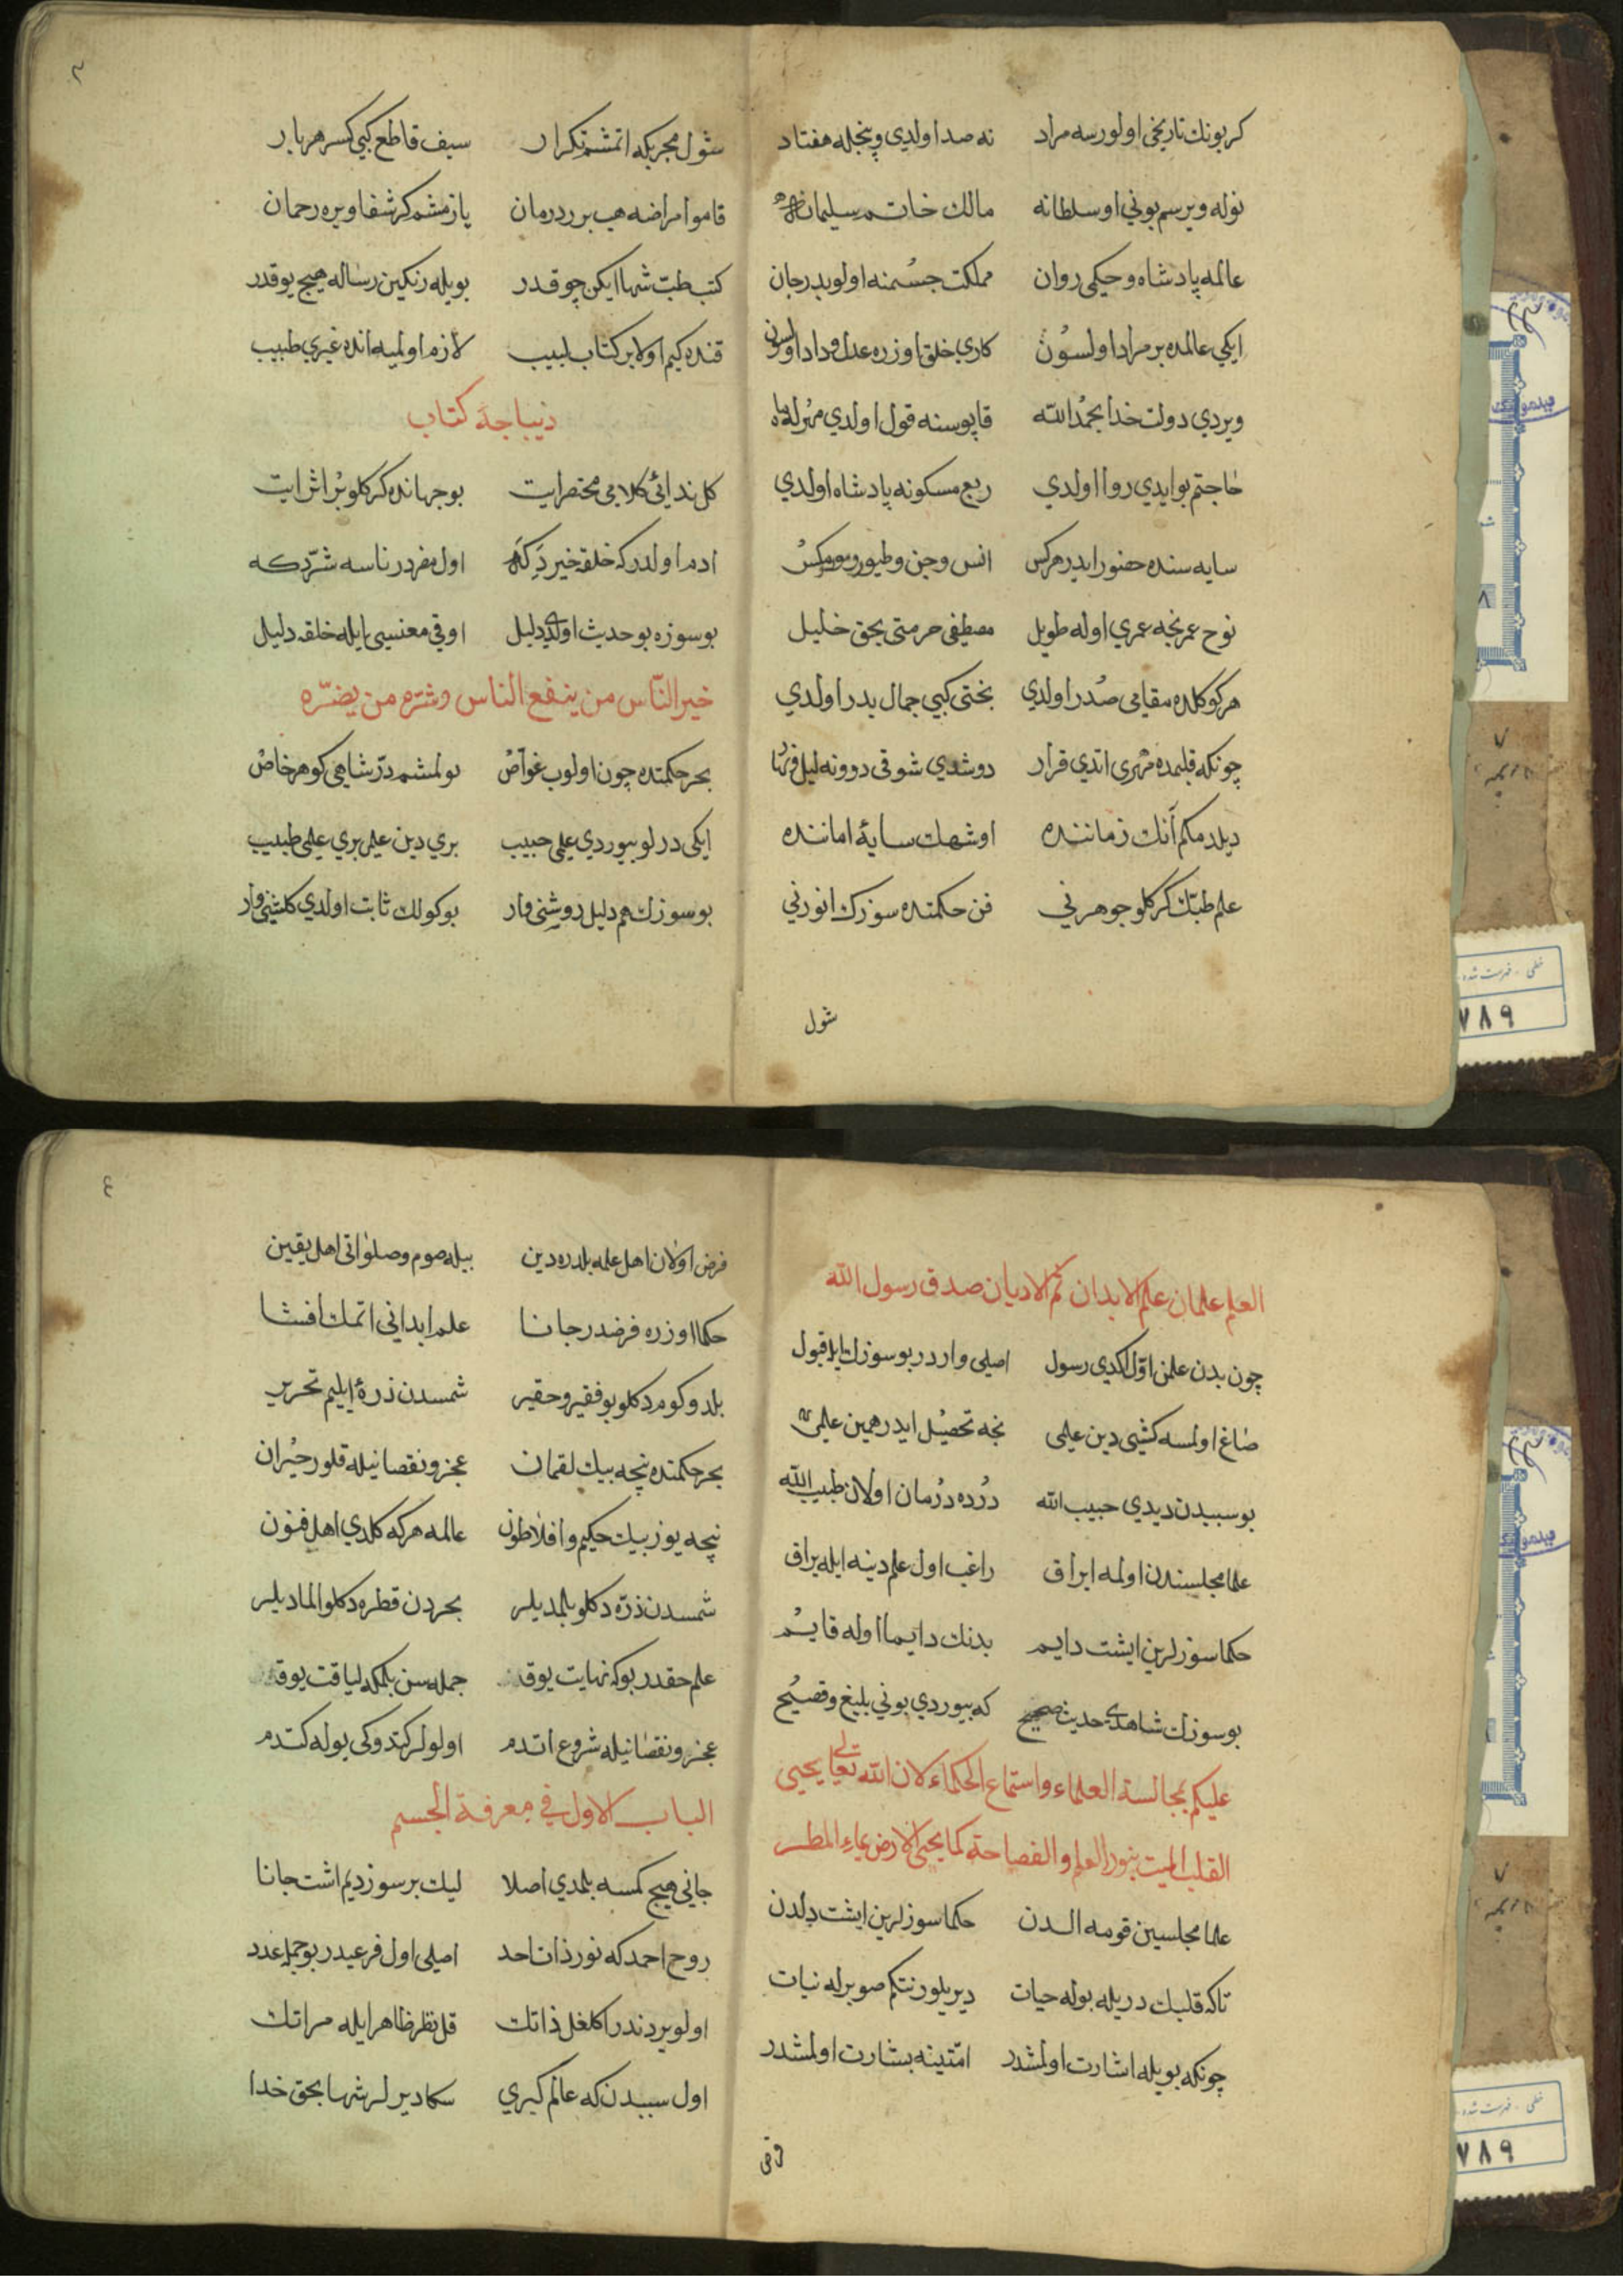 كر بونك تاريخى اولورسه مراد نه صد اولدى و پنجله هفتاد
نوله ويرسم بونى اوسلطانه مالك خاتم سليمانه
عالمه پادشاه وحكمى روان مملكت جسمنه اولوبدر جان
ايكى عالمده بر مراد اولسون كارى خلق اوزره عدل وداد اولسون
ويردى دولت خدا بحمد الله قاپوسنه قول اولدى مهرله ماه
حاجتم بوايدى روا اولدى ربع مسكونه پادشاه اولدى
سايه سنده حضور ايدر هركس انس وجن وطيور ومور ومكس
نوح عمر نجه عمرى اوله طويل مصطفى حرمتى بحق خليل
هر كوكلده مقامى صدر اولدى بختى كبى جمال بدر اولدى
چونكه قلبمده مهرى اتدى قرار دوشدى شوقى دوونه ليل ونهار
ديلدمكم آنك زماننده اوشهك سايهٔ اماننده
علم طبك كركلو جوهرنى فن حكمتده سوزك انورنى
شول
٣
شول مجربكه اتمشم تكرار سيف قاطع كبى كسر هر بار
قامو امراضه هب بر ر درمان يازمشم كر شفا ويره رحمان
كتب طب شها ايكن چوقدر بويله رنكين رساله هيچ يوقدر
قنده كيم اولا بر كتاب لبيب لازم اولميه انده غيرى طبيب
ديباجهٔ كتاب
كل ندائى كلامى مختصر ايت بو جهانده كركلو بر اثر ايت
ادم اولدركه خلقه خير دكه اول مضردر ناسه شر دكه
بو سوزه بو حديث اولدى دليل اوقى معنسى ايله خلقه دليل
خير النّاس من ينفع الناس وشره من يضرّه
بحر حكمتده چون اولوب غواص بولمشم در شاهى كوهر خاص
ايكى درلو بيوردى علمى حبيب برى دين علم برى علمى طبيب
بو سوزك هم دليل روشنى وار بوكولك ثابت اولدى كلشنى وار
العلم علمان علم الابدان ثم الاديان صدق رسول الله
چون بدن علمن اوّل اكدى رسول اصلى واردر بو سوزك ايله قبول
صاغ اولمسه كشى دين علمى نجه تحصيل ايدر همين علمى
بو سببدن ديدى حبيب الله درده درمان اولان طبيب الله
علما مجلسندن اولمه ايراق راغب اول علم دينه ايله يراق
حكما سوزلرين ايشت دايم بدنك دايما اوله قايم
بو سوزك شاهدى حديث صحيح كه بيوردى بونى بليغ وفصيح
عليكم بمجالسة العلماء واستماع الحكماء لان الله تعالى يحيى
القلب الميت بنور العلم والفصاحة كما يحيى الارض بماء المطر
علما مجلسين قومه الدن حكما سوزلرين ايشت دلدن
تاكه قلبك دريله بوله حيات ديريلور نتكم صو برله نبات
چونكه بويله اشارت اولمشدر امّتينه بشارت اولمشدر
٤
فرض اولان اهل علمه بلدره دين بيله صوم وصلواتى اهل يقين
حكما اوزره فرضدر جانا علم ابدانى اتمك افشا
بلدوكوم دكلو بو فقير وحقير شمسدن ذرهٔ ايليم تحرير
بحر حكمتده نچه بيك لقمان عجز ونقصانيله قلور حيران
نيچه يوز بيك حكيم وافلاطون عالمه هركه كلدى اهل فنون
شمسدن ذرّه دكلو بلمديلر بحردن قطره دكلو المديلر
علم حقدر بوكه نهايت يوقدر جمله سن بلمكه لياقت يوقدر
عجز ونقصانيله شروع اتدم اولولر كتدوكى يوله كتدم
الباب الاول فى معرفة الجسم
جانى هيچ كمسه بلمدى اصلا ليك بر سوز ديم اشت جانا
روح احمد كه نور ذات احد اصلى اول فرعيدر بو جمله عدد
اولو بردندر اكلغل ذاتك قل نظر ظاهر ايله مراتك
اول سببدن كه عالم كبرى سكا ديرلر شها بحق خدا